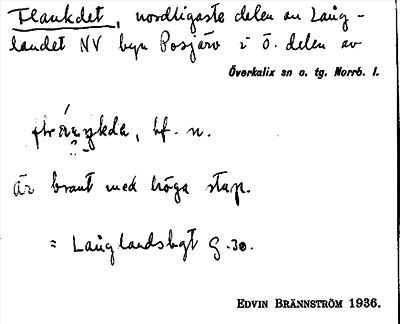 Flankdet, nordligaste delen av Lång-
landet NV byn Posjärv i ö. delen av
Överkalix sn o. tg. Norrb. l.
bf. n.
är brant med höga stap.
= Långlandsbgt G.30.
EDVIN BRÄNNSTRÖM 1936.